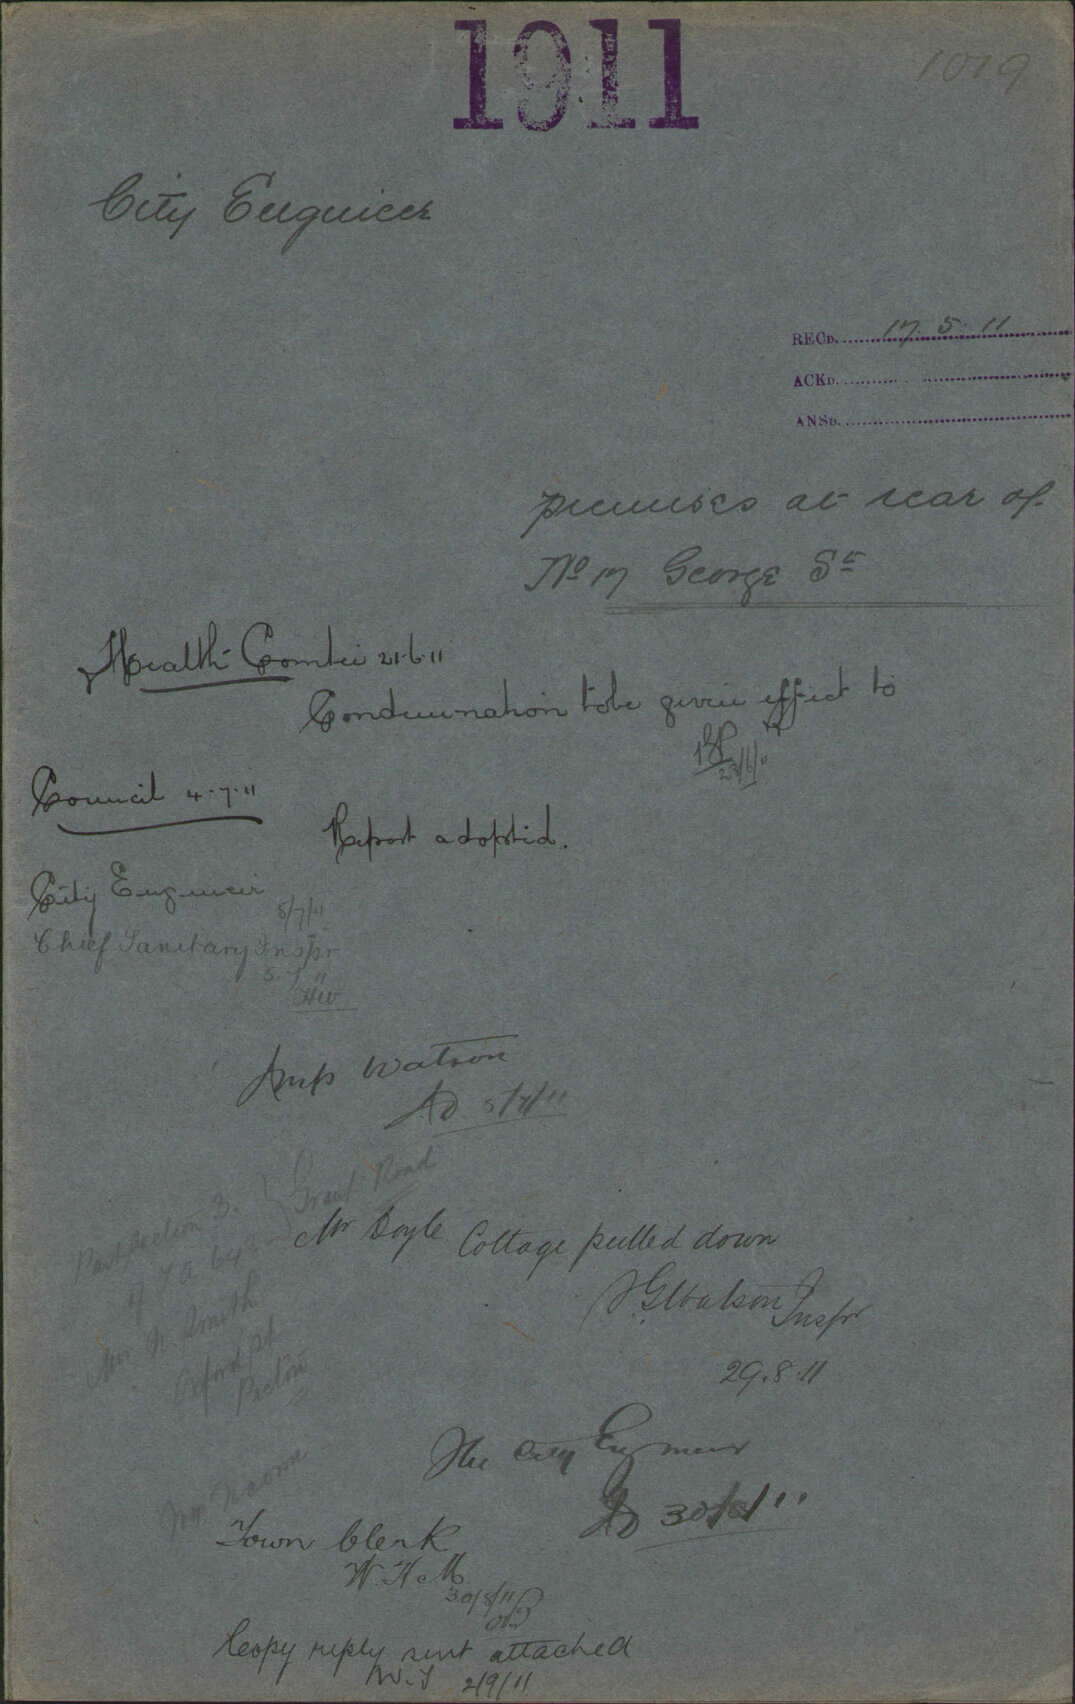 1911
1019
City Engineer
RECD. 17.5.11
ACKD.
ANSD.
premises at rear of
No 17 George St
Health Comtee 21.6.11
Condemnation to be given effect to
23/6/11
Council 4.7.11
Report adopted.
City Engineer
5/7/11
Chief Sanitary Inspr
5.7.11
Insp Watson
AD 5/7/11
Grant Road
Part Section 3.
of TA 642
Mr Doyle Cottage pulled down
Watson Inspr
Mr Smith
Oxford St
29.8.11
The City Engineer
AD 30/8/11
Town Clerk
W H M
30/8/11
Copy reply sent attached
2/9/11